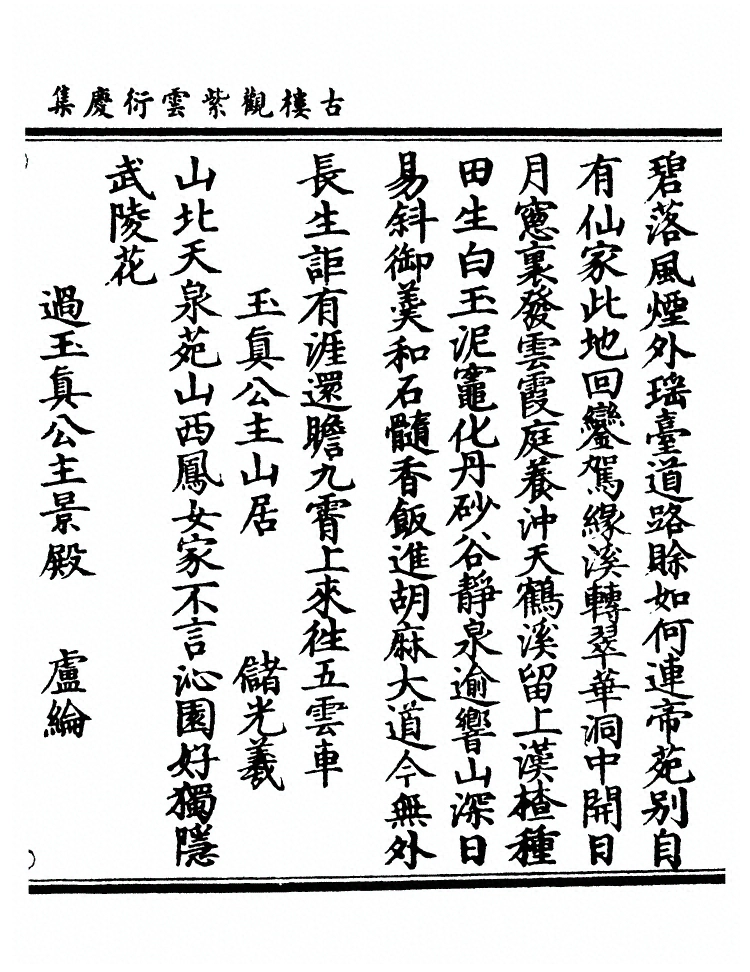 古樓觀紫雲衍慶集
碧落風煙外瑶臺道路賒如何連帝苑别自
有仙家此地回鑾駕緣溪轉翠華洞中開日
月窻裏發雲霞庭養沖天鶴溪留上漢楂種
田生白玉泥竈化丹砂谷靜泉逾響山深日
易斜御羮和石髓香飯進胡麻大道今無外
長生詎有涯還瞻九霄上來徃五雲車
玉真公主山居　儲光羲
山北天泉苑山西鳳女家不言沁園好獨隱
武陵花
過玉真公主景殿　盧綸